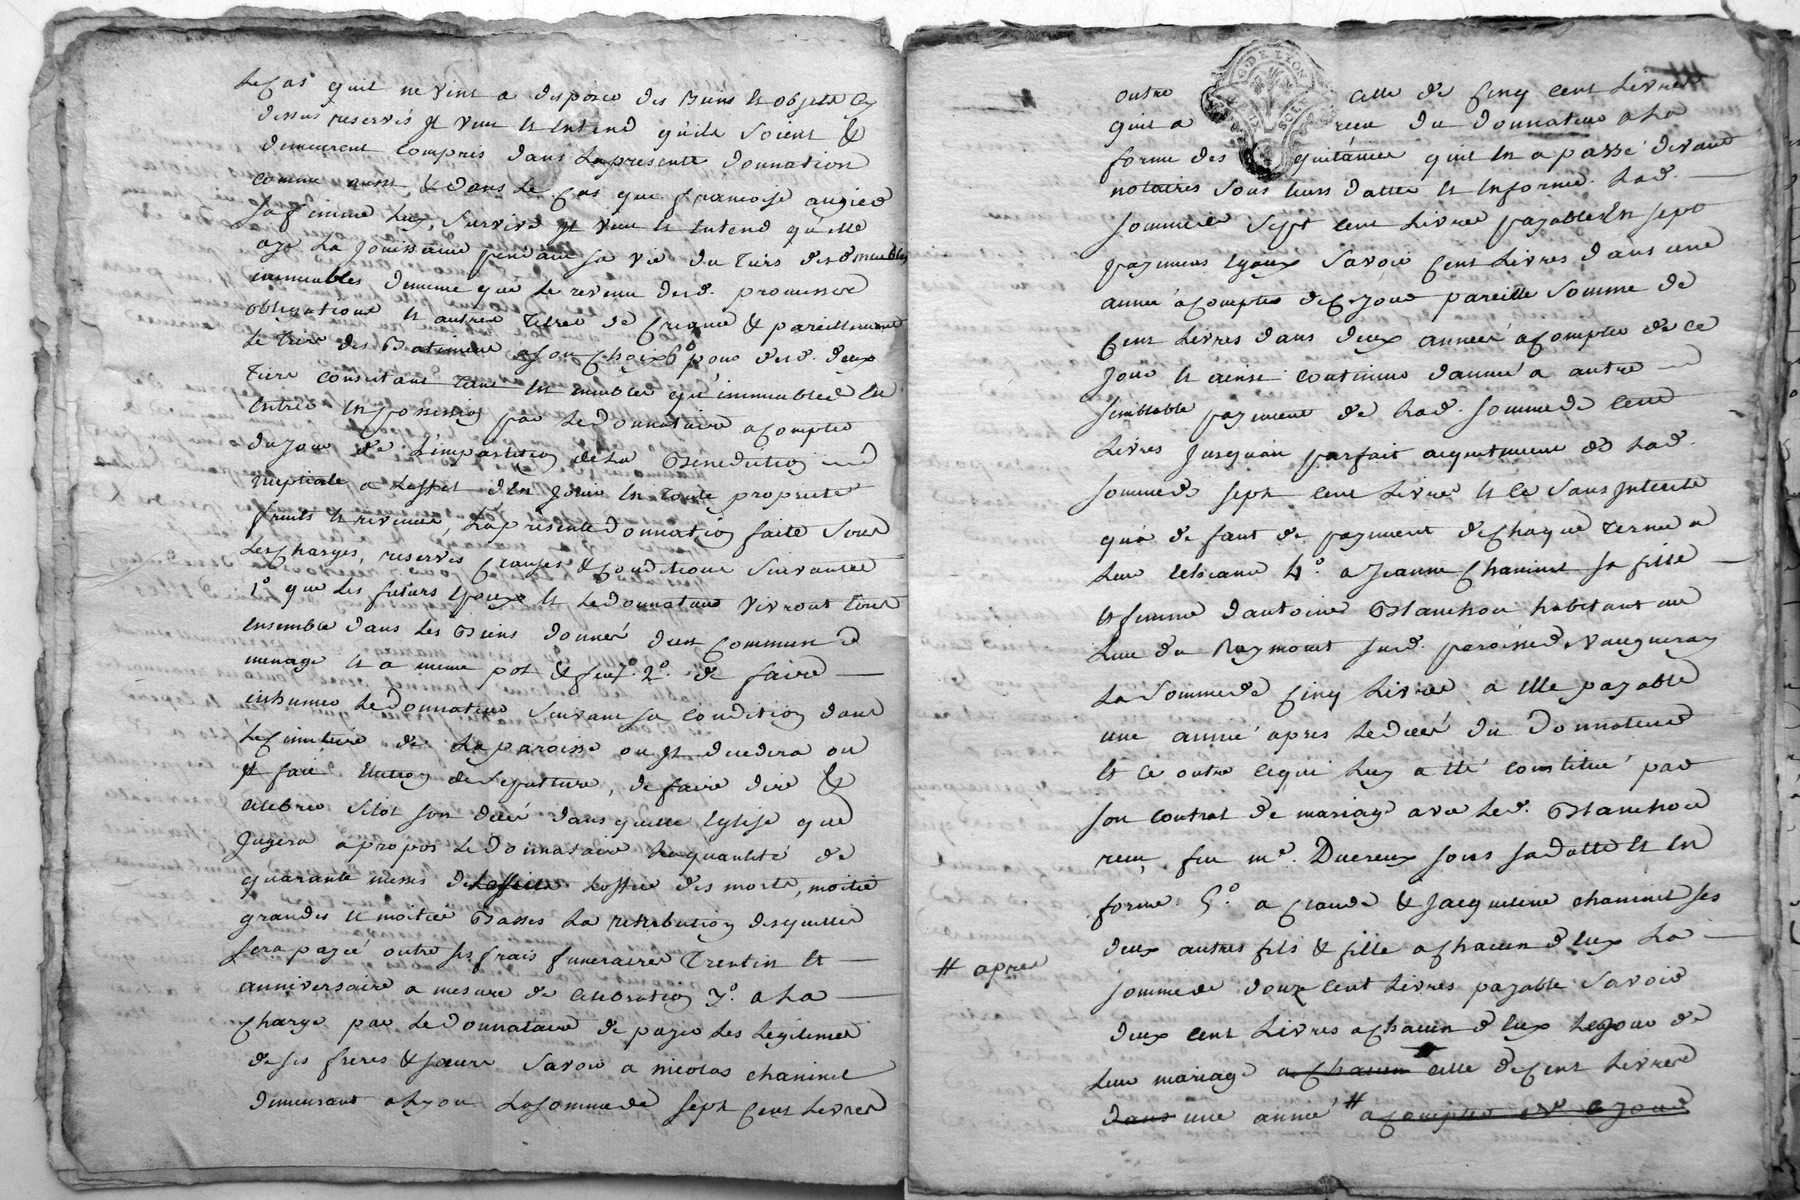 le Cas qu'il ne vint a disposer des Biens et objets Cy
dessus reservés Il veut et entend qu'ils soient &
demeurent Compris dans la presente donnation
comme aussi, & dans le Cas que francoise augier
sa femme luy survive Il veut et entend qu'elle
aye la jouissance pendant sa vie du tiers desd. meubles
immeubles de meme que le revenu desd. promesses
obligations et autres titres de Creance & pareillement
le tiers des Batiments a son Choix 6° pour desd. deux
tiers consistant tant en meubles qu'immeubles en
entrer en possession par le donnataire a Compter
du jour de l'impartition de la Benediction
nuptiale a l'effet d'en jouir en toute proprieté
fruits et revenus, la presente donnation faite sous
les Charges, reserves Clauses & Conditions suivantes
1° que les futurs Epoux et le donnateur vivront tous
ensemble dans les Biens donnés d'un Commun
menage et a meme pot & feu. 2° de faire
inhumer le donnateur suivant sa Condition dans
le Cimitiere de la paroisse ou Il decedera ou
Il fait election de sepulture, de faire dire &
celebrer sitôt son decés dans quelle Eglise que
Jugera a propos le donnataire la quantité de
quarante messes de l'office des morts, moitié
grandes et moitié Basses la retribution desquelles
sera payé outre ses frais funeraires Trentin et
anniversaire a mesure de celebration 3° a la
Charge par le donnataire de payer les legitimes
de ses freres & soeurs savoir a nicolas chaninel
demeurant a Lyon la somme de sept Cent livres
G. DE LYON
SOLS
outre celle de Cinq cent livres
qu'il a reçu du donnateur a la
forme des quitances qu'il en a passé devant
notaires sous leurs dattes et en forme lad.
somme de sept cent livres payables en sept
payments egaux savoir Cent livres dans une
année a Compter de Ce jour pareille somme de
Cent livres dans deux années a Compter de ce
jour et ainsi continuer d'année a autre
semblable payment de lad. somme de cent
livres jusqu'au parfait acquittement de lad.
somme de sept cent livres et ce sans interets
qu'a defaut de payment de Chaque terme a
leur echeance 4° a Jeanne Chaninel sa fille
et femme d'antoine Blanchon habitant au
lieu du Raymont sud. paroisse de Vaugneray
la somme de Cinq livres a elle payable
une année apres le decés du Donnateur
et ce outre ce qui luy a eté constitué par
son contrat de mariage avec led. Blanchon
reçu feu me. Ducreux sous sa datte et en
forme. 5° a Claude & Jacqueline chaninel ses
deux autres fils & fille a Chacun d'eux la
somme de douze cent livres payable savoir
deux cent livres a Chacun d'eux le jour de
leur mariage a Chacun celle de Cent livres
dans une année # a Compter de Ce jour
# apres